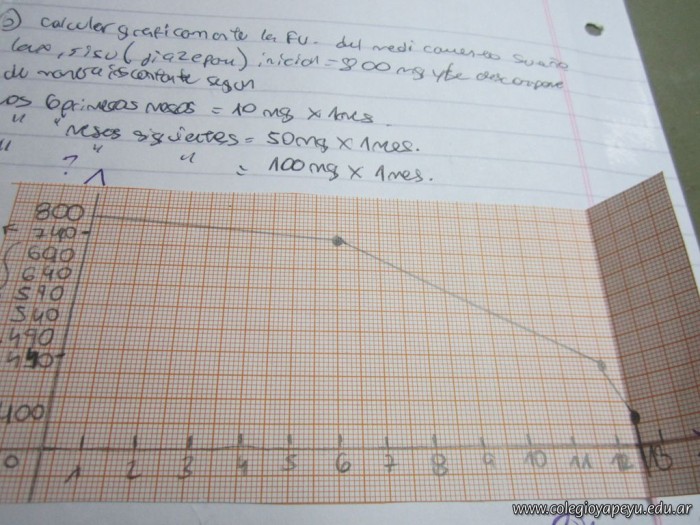 calculer graficamente la F.U. del medicamento sueño
inicial = 800 mg y se descompone
de manera
los 6 primeros meses = 10 mg x 1 mes.
" " meses siguientes = 50 mg x 1 mes.
" " " = 100 mg x 1 mes.
?
800
740
690
640
590
540
490
440
400
0 1 2 3 4 5 6 7 8 9 10 11 12 13
www.colegioyapeyu.edu.ar